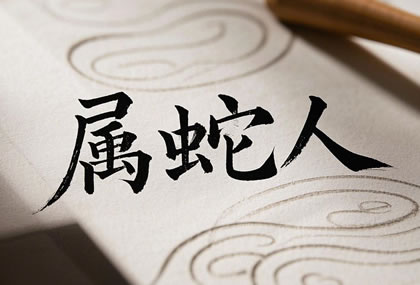 属蛇人